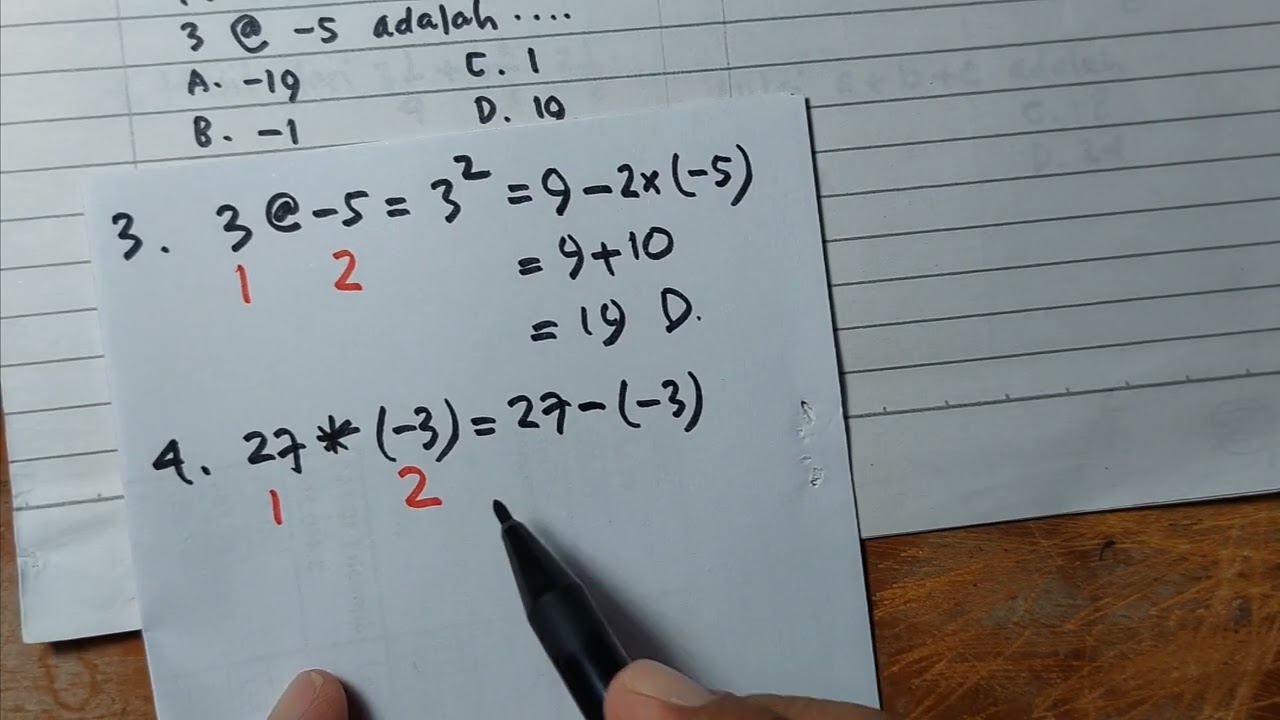 3 @ -5 adalah ....
A. -19 C. 1
B. -1 D. 19
3. 3 @ -5 = 3² = 9 - 2x (-5)
1 2 = 9 + 10
= 19 D.
4. 27 * (-3) = 27 - (-3)
1 2